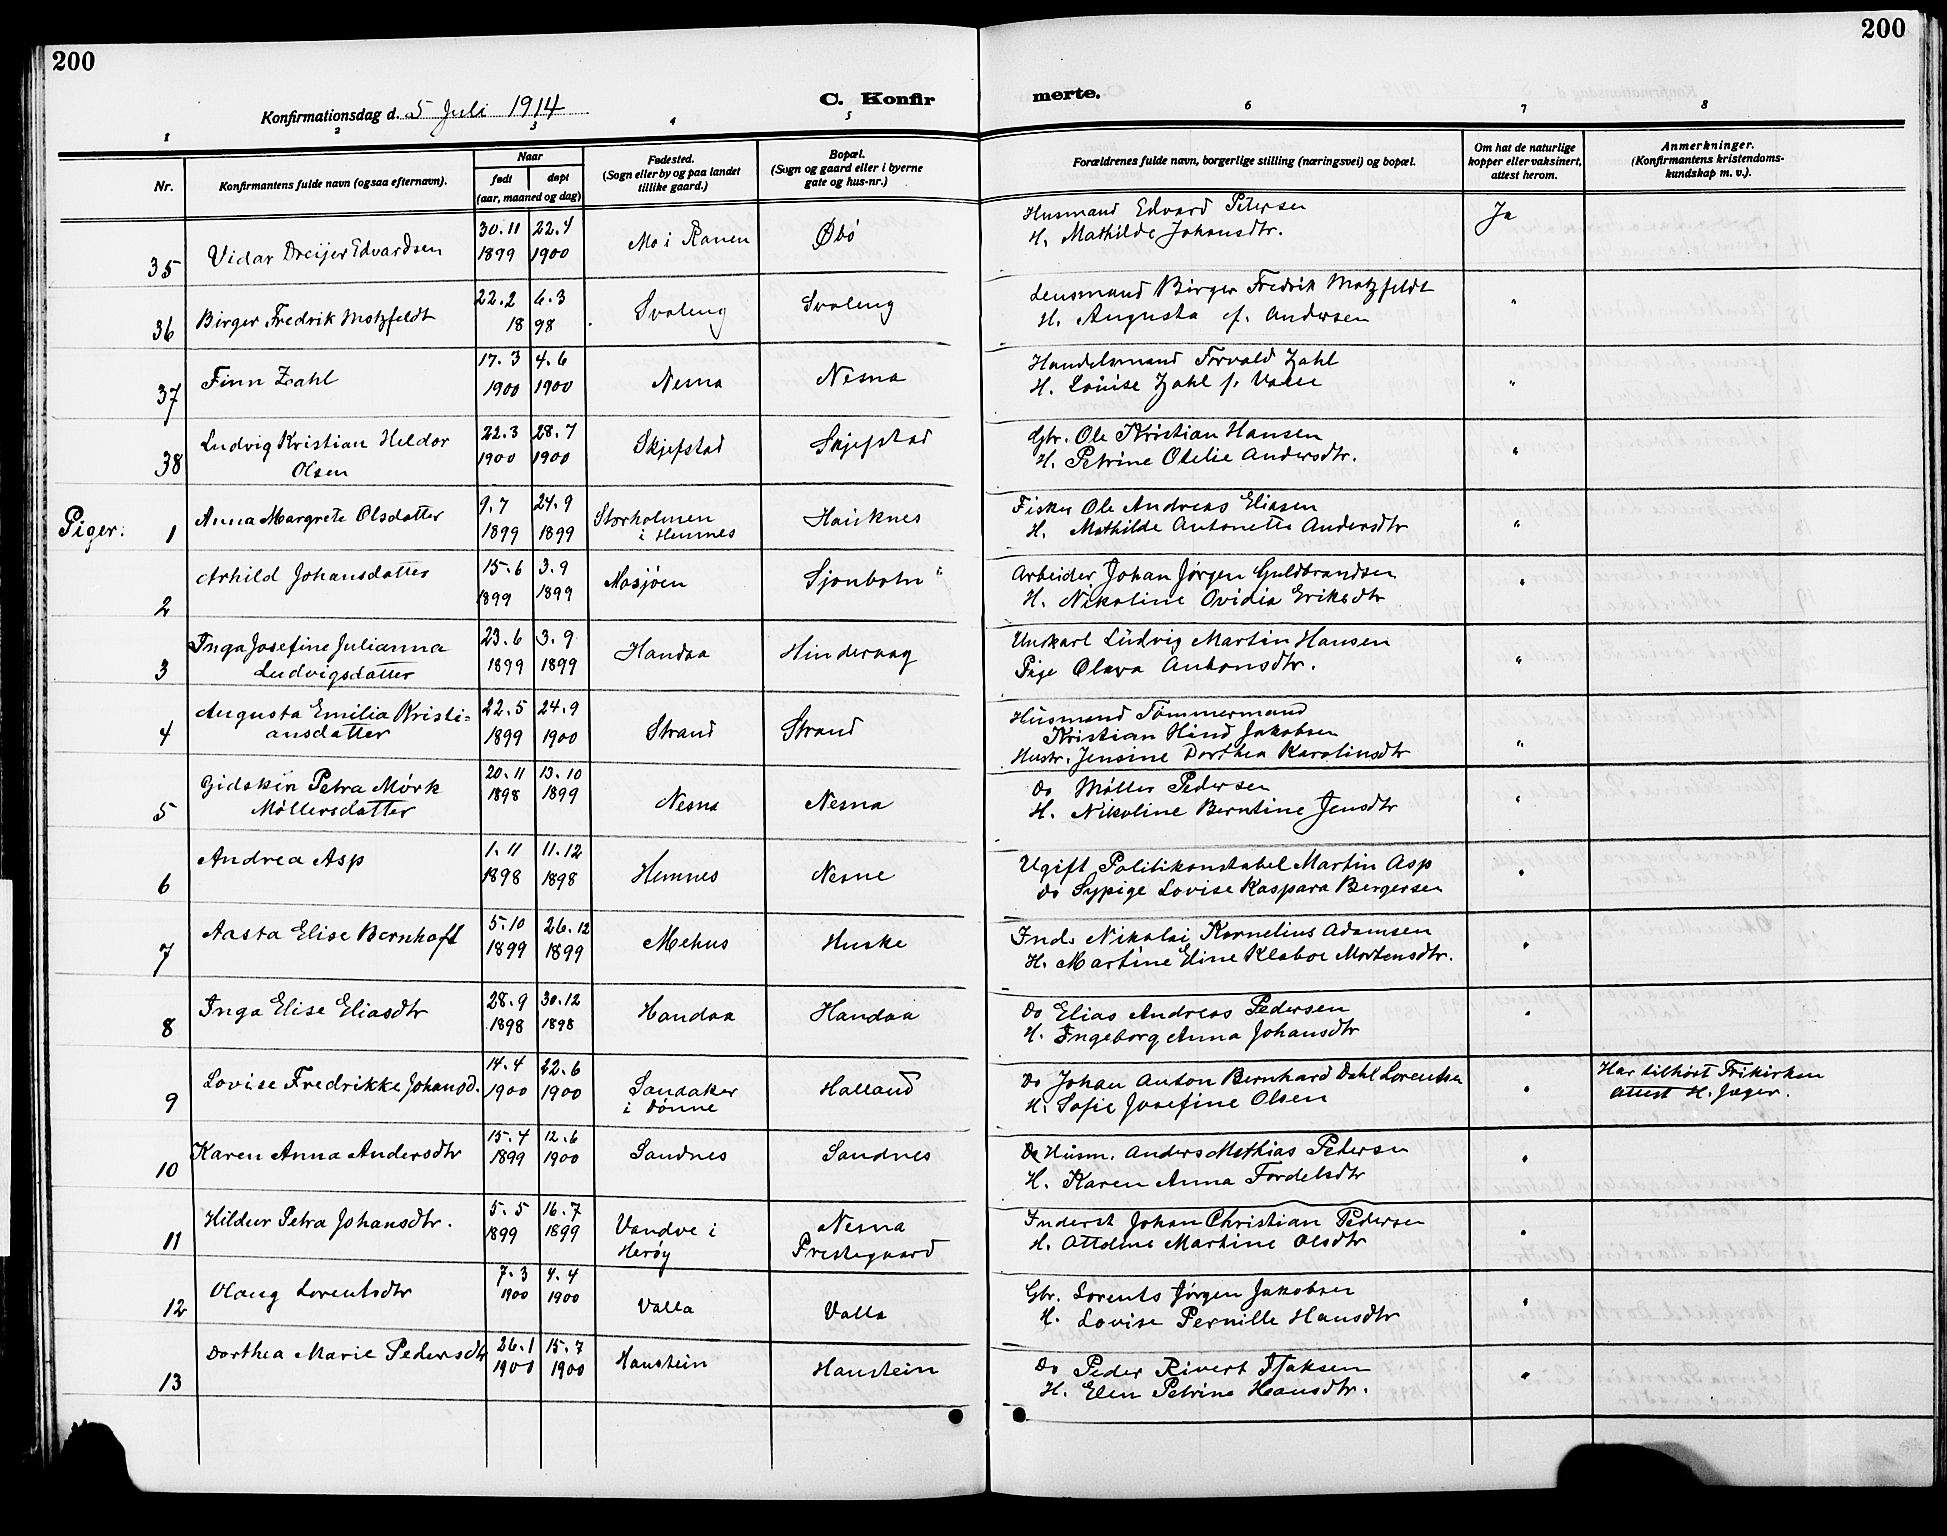 200
200
Konfirmationsdag d. 5 Juli 1914
C. Konfir
merte.
1 2 3 4 5 6 7 8
Nr.
Konfirmantens fulde navn (ogsaa efternavn).
Naar
født
døpt
(aar, maaned og dag)
Fødested.
(Sogn eller by og paa landet
tillike gaard.)
Bopæl.
(Sogn og gaard eller i byerne
gate og hus-nr.)
Forældrenes fulde navn, borgerlige stilling (næringsvei) og bopæl.
Om hat de naturlige
kopper eller vaksinert,
attest herom.
Anmerkninger.
(Konfirmantens kristendoms-
kundskap m. v.).
35 Vidar Dreijer Edvardsen 30.11 1899 22.4 1900 Mo i Ranen Øbö Husmand Edvard Petersen Ja
H. Mathilde Johansdtr.
36 Birger Fredrik Motzfeldt 22.2 6.3 1898 Svaleng Svaleng Lensmand Birger Fredrik Motzfeldt "
H. Augusta f. Andersen
37 Finn Zahl 17.3 1900 4.6 1900 Nesna Nesna Handelsmand Torvald Zahl "
H. Louise Zahl f.
38 Ludvig Kristian Heldor 22.3 1900 28.7 1900 Skjefstad Skjefstad Gbr. Ole Kristian Hansen "
Olsen H. Petrine Otelie Andersdtr.
Piger:
1 Anna Margrete Olsdatter 9.7 1899 24.9 1899 Storholmen Hauknes Fisker Ole Andreas Eliasen "
i Hemnes H. Mathilde Antonette Andersdtr
2 Arhild Johansdatter 15.6 1899 3.9 1899 Mosjøen Sjonbotn Arbeider Johan Jørgen Guldbrandsen "
H. Nikoline Ovidia Eriksdtr
3 Inga Josefine Julianna 23.6 1899 3.9 1899 Handaa Hinderaag Ungkarl Ludvig Martin Hansen "
Ludvigsdatter Pige Olava Antonsdtr.
4 Augusta Emilia Kristi= 22.5 1899 24.9 1900 Strand Strand Husmand Tömmermand "
ansdatter Kristian Hind Jakobsen
Hustr. Jensine Dorthea Karolinsdtr
5 Gidskin Petra Mørk 20.11 1898 13.10 1899 Nesna Nesna Do Møller Pedersen "
Møllersdatter H. Nikoline Berntine Jensdtr
6 Andrea Asp 1.11 1898 11.12 1898 Hemnes Nesne Ugift Politikonstabel Martin Asp "
do Sypige Lovise Kaspara Bergersen
7 Aasta Elise Bernhoft 5.10 1899 26.12 1899 Mehus Huske Ind. Nikolai Kornelius Adamsen "
H. Martine Eline Klaboe Mortensdtr.
8 Inga Elise Eliasdtr 28.9 1898 30.12 1898 Handaa Handaa Do Elias Andreas Pedersen "
H. Ingeborg Anna Johansdtr
9 Lovise Fredrikke Johansd. 14.4 1900 22.6 1900 Sandaker Halland Do Johan Anton Bernhard Dahl Lorentsen " Har tilhört Frikirken
i Dønne H. Sofie Josefine Olsen Attest H. Jæger.
10 Karen Anna Andersdtr 15.4 1899 12.6 1900 Sandnes Sandnes Do Husm. Anders Mathias Petersen "
H. Karen Anna Tordelsdtr
11 Hildur Petra Johansdtr. 5.5 1899 16.7 1899 Vandve i Nesna Inderst Johan Christian Pedersen "
Herøy Prestegaard H. Ottdine Martine Olsdtr
12 Olaug Lorentsdtr 7.3 1900 4.4 1900 Valla Valla Gbr. Lorents Jørgen Jakobsen "
H. Lovise Pernille Hansdtr
13 Dorthea Marie Pedersdtr 26.1 1900 15.7 1900 Haustein Haustein Do Peder Rivert Isaksen "
H. Elen Petrine Hansdtr.